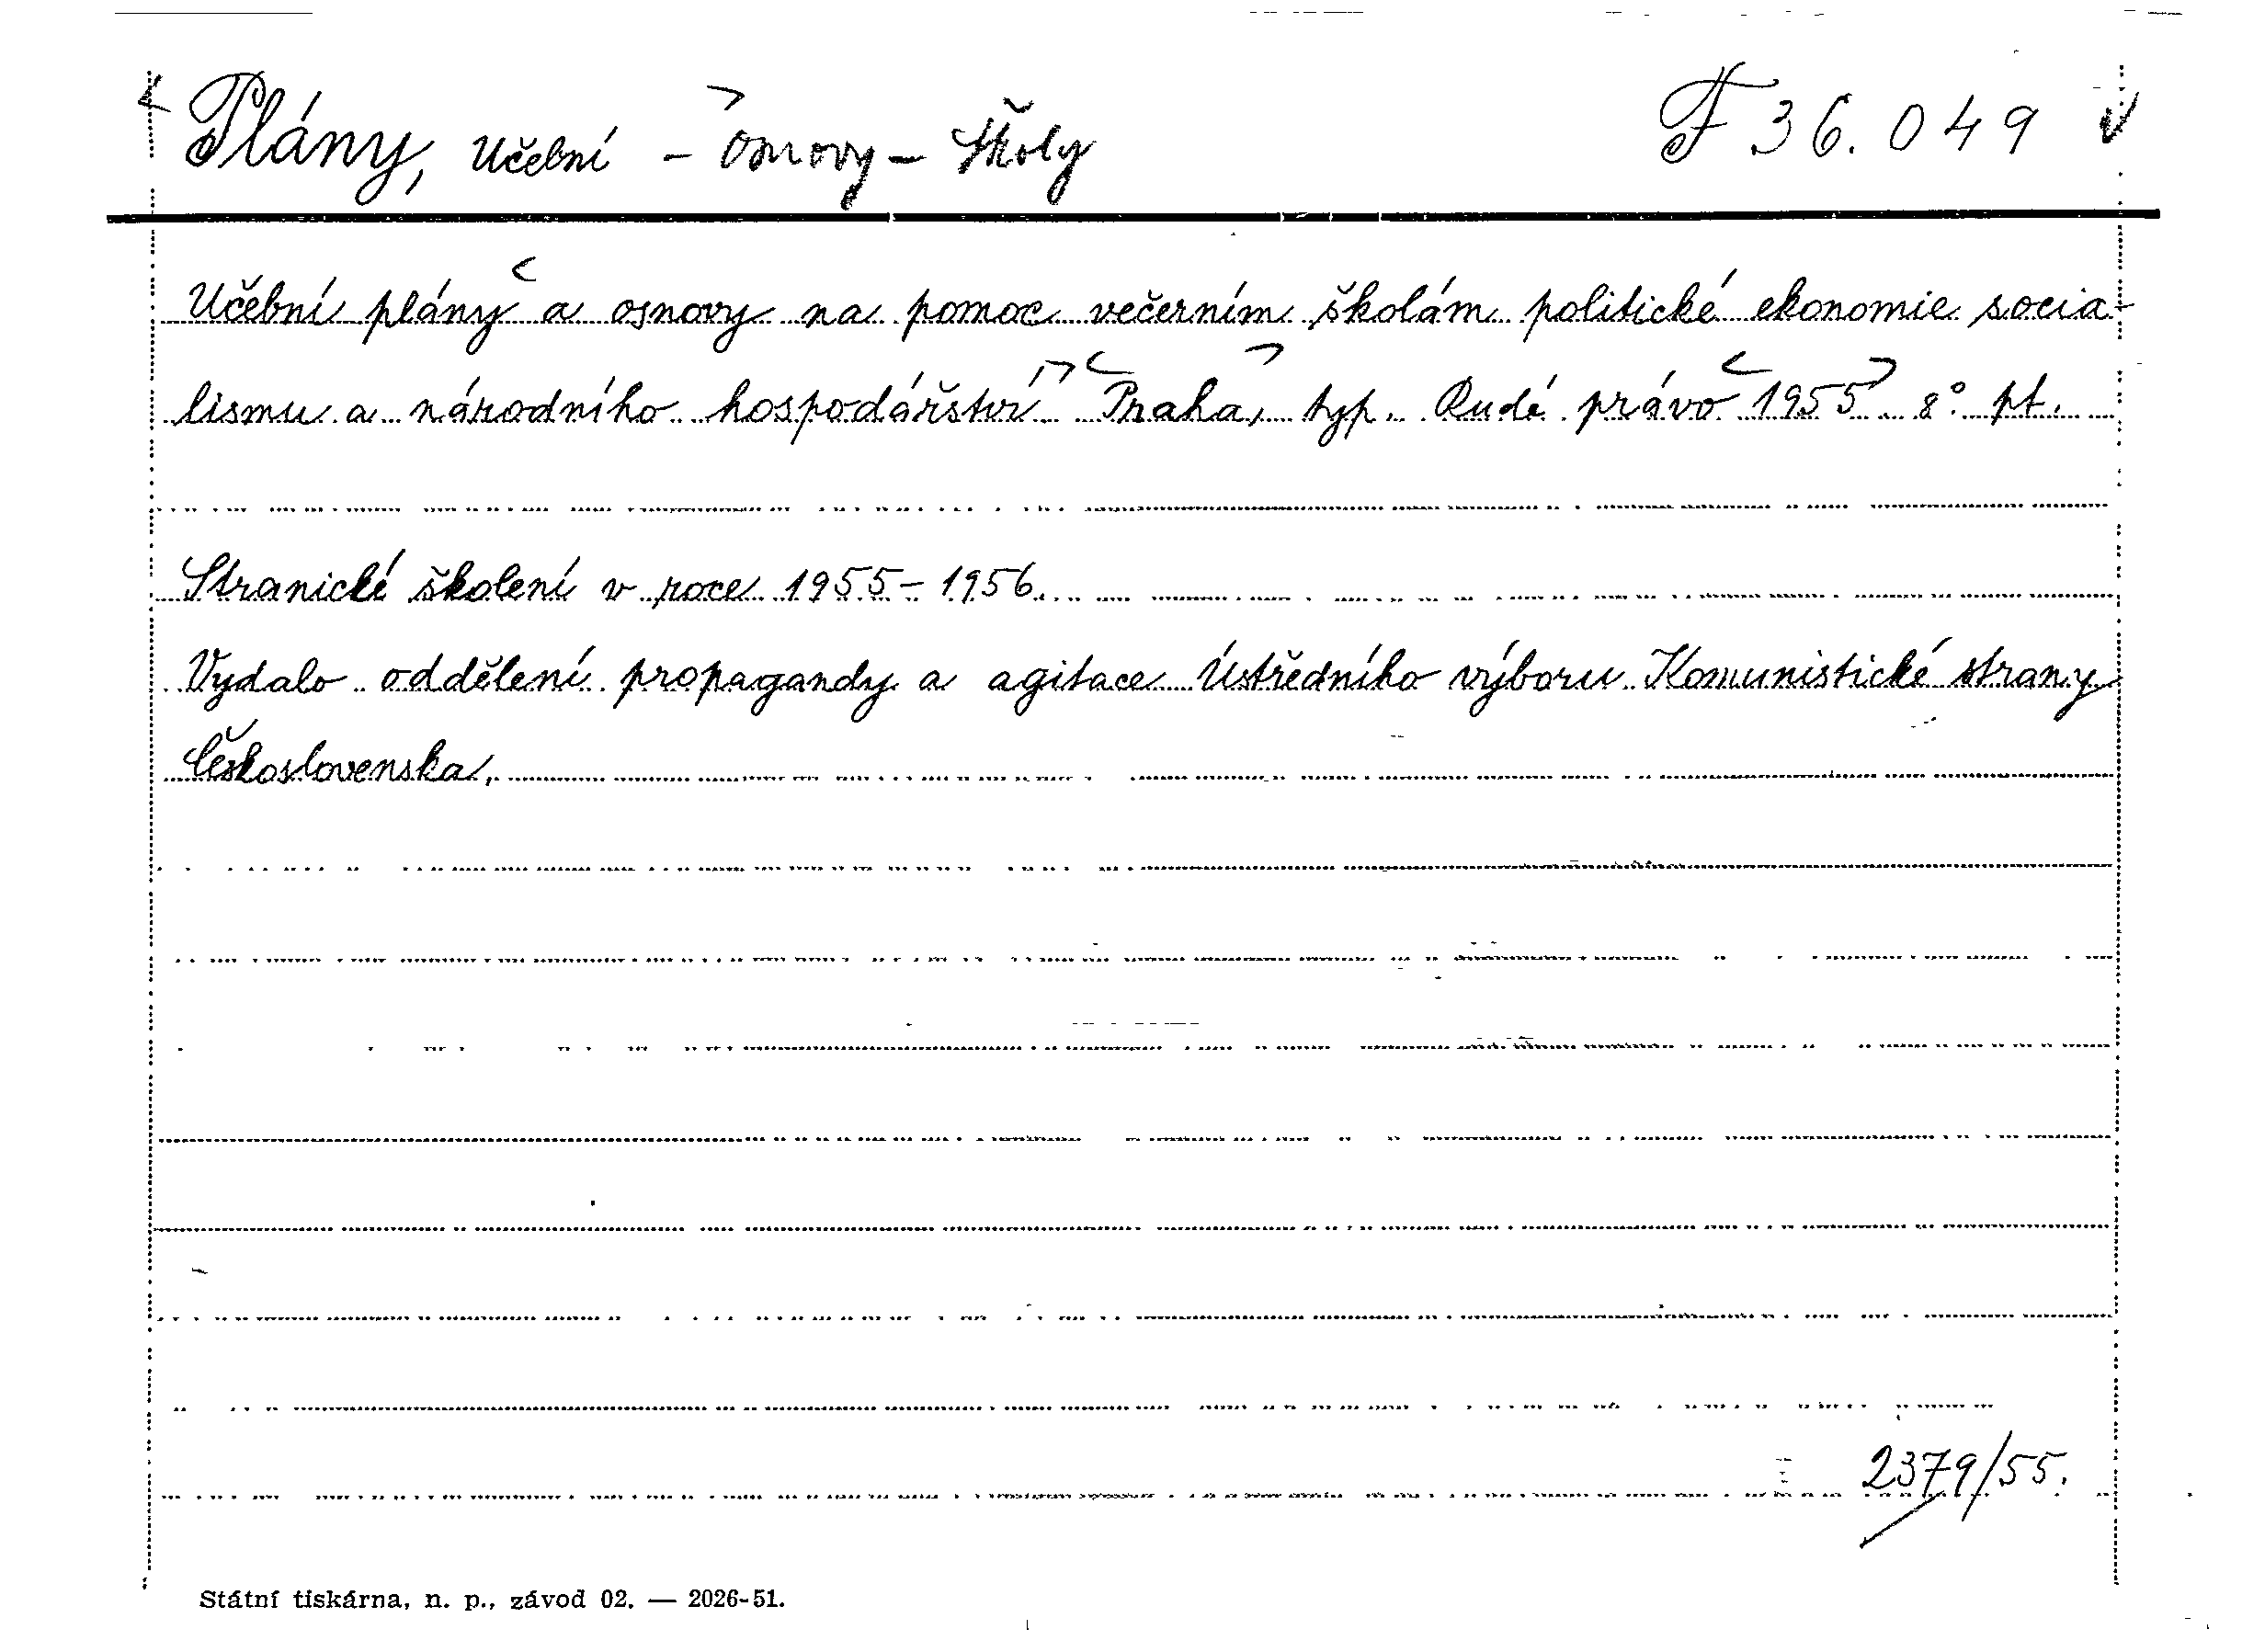 Plány, učební - Osnovy - školy F 36.049
Učební plány a osnovy na pomoc večerním školám politické ekonomie socia-
lismu a národního hospodářství Praha, typ. Rudé právo 1955 8° pt.
Stranické školení v roce 1955-1956.
Vydalo oddělení propagandy a agitace Ústředního výboru Komunistické strany
Československa.
2379/55.
Státní tiskárna, n. p., závod 02. — 2026-51.